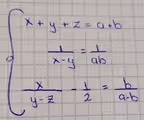 x + y + z = a + b
1/(x-y) = 1/(ab)
x/(y-z) - 1/2 = b/(a-b)